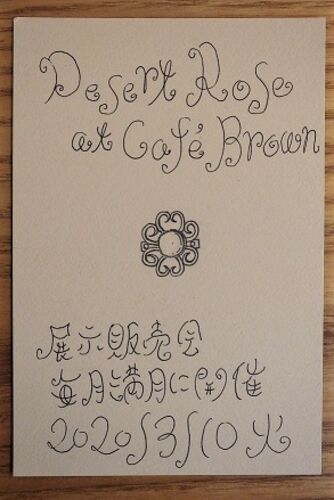 Desert Rose
at Café Brown
展示販売会
毎月満月に開催
2020/3/10 火